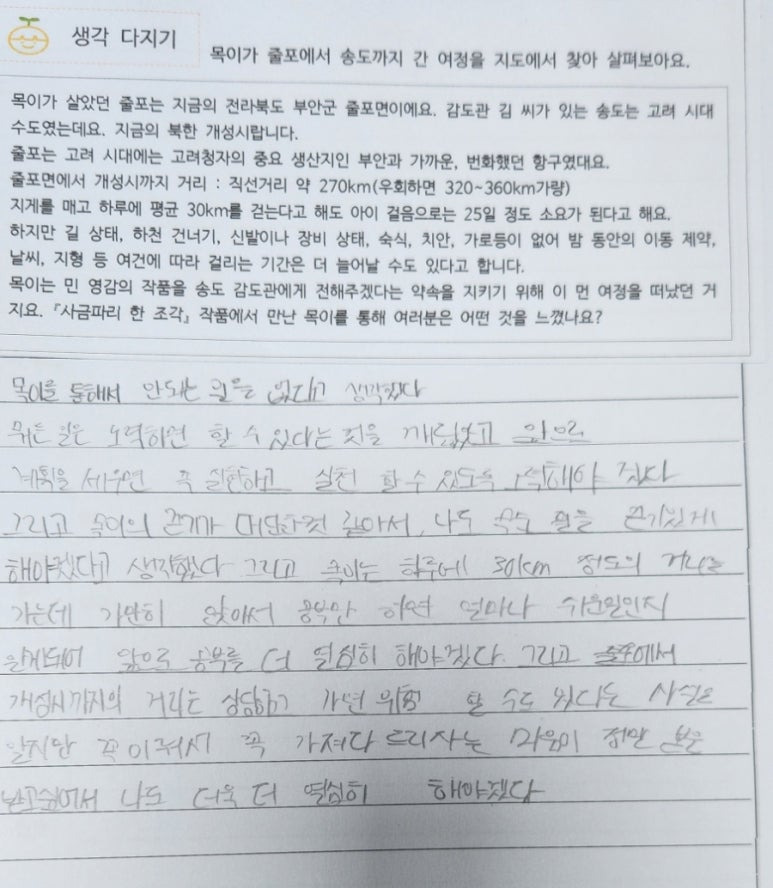 생각 다지기
목이가 줄포에서 송도까지 간 여정을 지도에서 찾아 살펴보아요.
목이가 살았던 줄포는 지금의 전라북도 부안군 줄포면이에요. 감도관 김 씨가 있는 송도는 고려 시대
수도였는데요. 지금의 북한 개성시랍니다.
줄포는 고려 시대에는 고려청자의 중요 생산지인 부안과 가까운, 번화했던 항구였대요.
줄포면에서 개성시까지 거리 : 직선거리 약 270km(우회하면 320~360km가량)
지게를 매고 하루에 평균 30km를 걷는다고 해도 아이 걸음으로는 25일 정도 소요가 된다고 해요.
하지만 길 상태, 하천 건너기, 신발이나 장비 상태, 숙식, 치안, 가로등이 없어 밤 동안의 이동 제약,
날씨, 지형 등 여건에 따라 걸리는 기간은 더 늘어날 수도 있다고 합니다.
목이는 민 영감의 작품을 송도 감도관에게 전해주겠다는 약속을 지키기 위해 이 먼 여정을 떠났던 거
지요. 『사금파리 한 조각』 작품에서 만난 목이를 통해 여러분은 어떤 것을 느꼈나요?
목이를 통해서 안되는 일은 없다고 생각했다
뭐든 일은 노력하면 할 수 있다는 것을 깨달았고 앞으로
계획을 세우면 꼭 실현하고 실천 할 수 있도록 노력해야 겠다
그리고 목이의 끈기가 대단한것 같아서, 나도 무슨 일을 끈기있게
해야겠다고 생각했다 그리고 목이는 하루에 30km 정도의 거리를
가는데 가만히 앉아서 공부만 하면 얼마나 쉬운일인지
알게되어 앞으로 공부를 더 열심히 해야겠다. 그리고 줄포에서
개성시까지의 거리는 상당하고 가면 위험 할 수도 있다는 사실을
알지만 꼭 가져다 드리자는 마음이 정말
나도 더욱 더 열심히 해야겠다